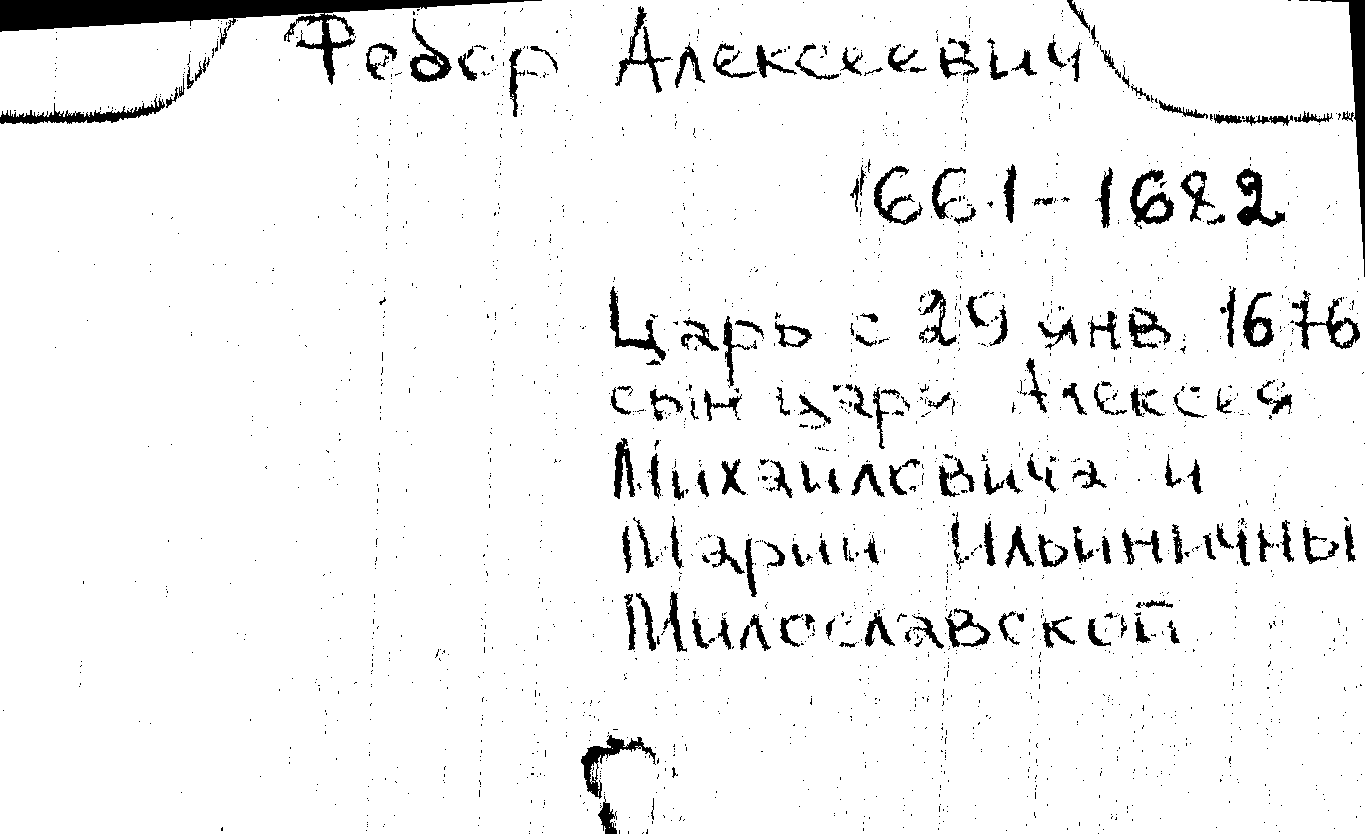 Федор Алексеевич
1661-1682
Царь с 29 янв. 1676
сын царя Алексея
Михайловича и
Марии Ильиничны
Милославской